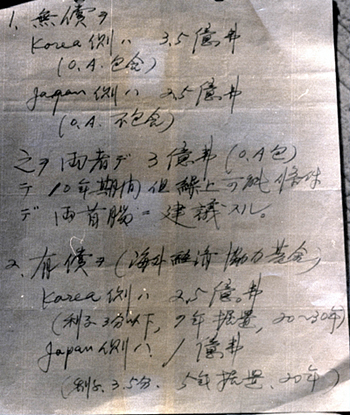 1. 無償ヲ
Korea 側ハ 3.5億弗
(O.A.包含)
Japan 側ハ 2.5億弗
(O.A. 不包含)
之ヲ両者デ 3億弗 (O.A包)
デ 10年期間 但繰上可能 條件
デ 両首脳ニ 建議スル。
2. 有償ヲ (海外経済協力基金)
Korea 側ハ 2.5億弗
(利子3分以下, 7年据置, 20~30年)
Japan 側ハ 1億弗
(利子 3.5分, 5年据置, 20年)